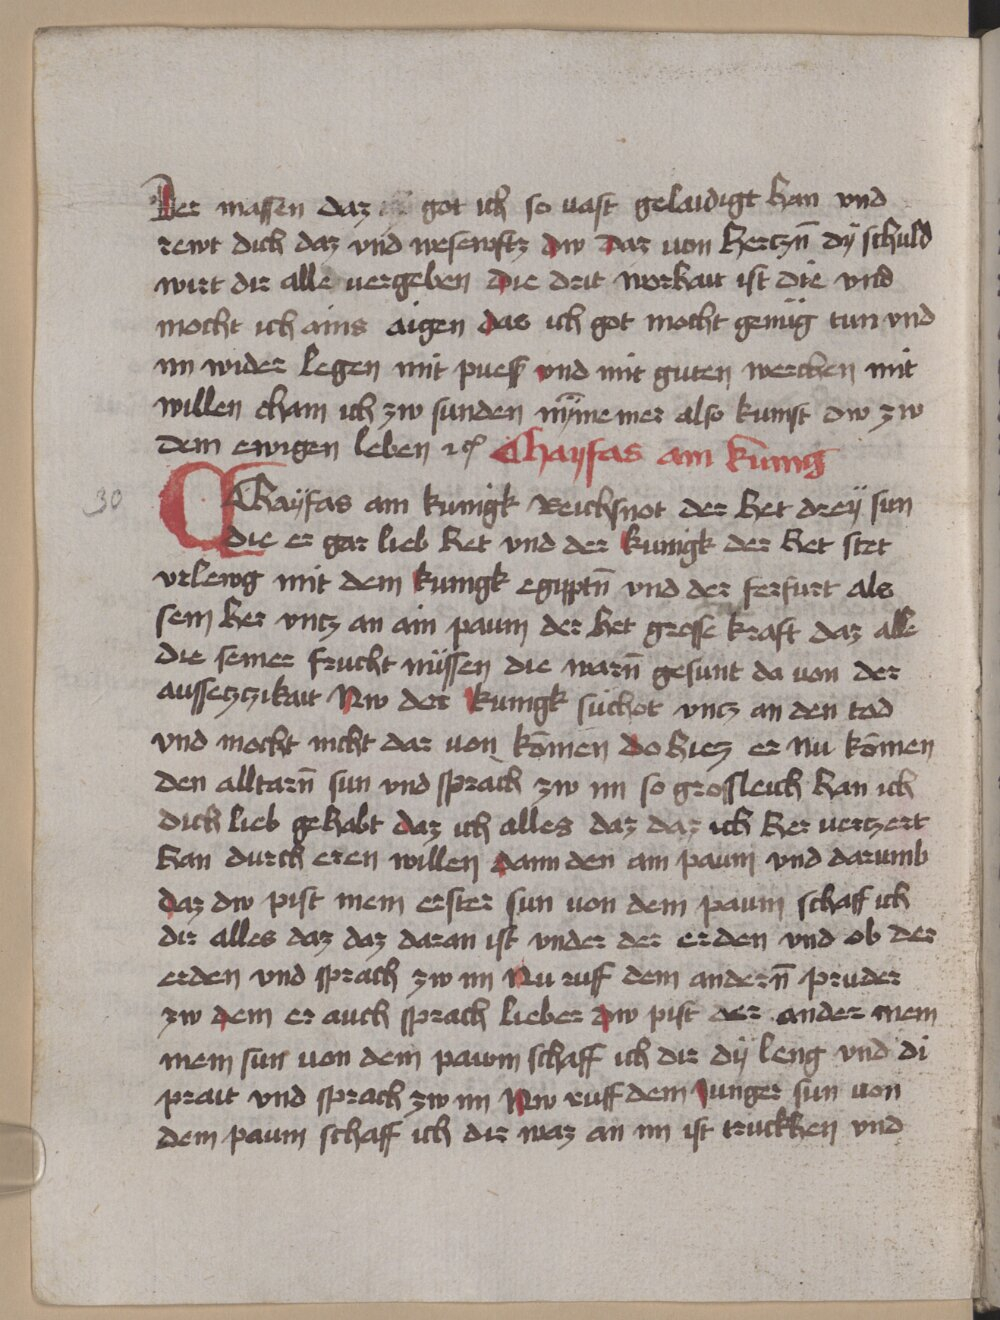 Der massen daz got ich so vast gelaidigt han vnd
rewt dich daz vnd wesewftz dw daz von hertzn̄ dÿ schuld
wirt dir alle vergeben die drit worhait ist die vnd
mocht ich ains aigen das ich got mocht genüg tun vnd
im wider legen mit puess vnd mit guten werchen mit
willen cham ich zw sunden nÿmemer also kumst dw zw
dem ewigen leben ꝛc Chayfas am kunig
30
CHayfas am kunigk Reichsnot der het dreÿ sun
die er gar lieb het vnd der kunigk der het stet
vrlewg mit dem kunigk egipptn̄ vnd der ferfurt als
sein her vntz an ain paum der het grosse kraft daz alle
die seiner frucht nüssen die warn̄ gesunt da von der
aussetzzikait Nw der kunigk suchot vntz an den tod
vnd mocht nicht dar von kömen do hiez er nu kömen
den alltarn̄ sun vnd sprach zw im so grossleich han ich
dich lieb gehabt daz ich alles daz daz ich her vertzert
han durch eren willen dann den am paum vnd darumb
daz dw pist mein erster sun von dem paum schaff ich
dir alles daz daz daran ist vnder der erden vnd ob der
erden vnd sprach zw im Nu ruff dem andern̄ pruder
zw dem er auch sprach lieber dw pist der ander mein
mein sun von dem pawm schaff ich dir dÿ leng vnd di
prait vnd sprach zw im Nw ruff dem Junger sun von
dem paum schaff ich dir waz an im ist truckhen vnd